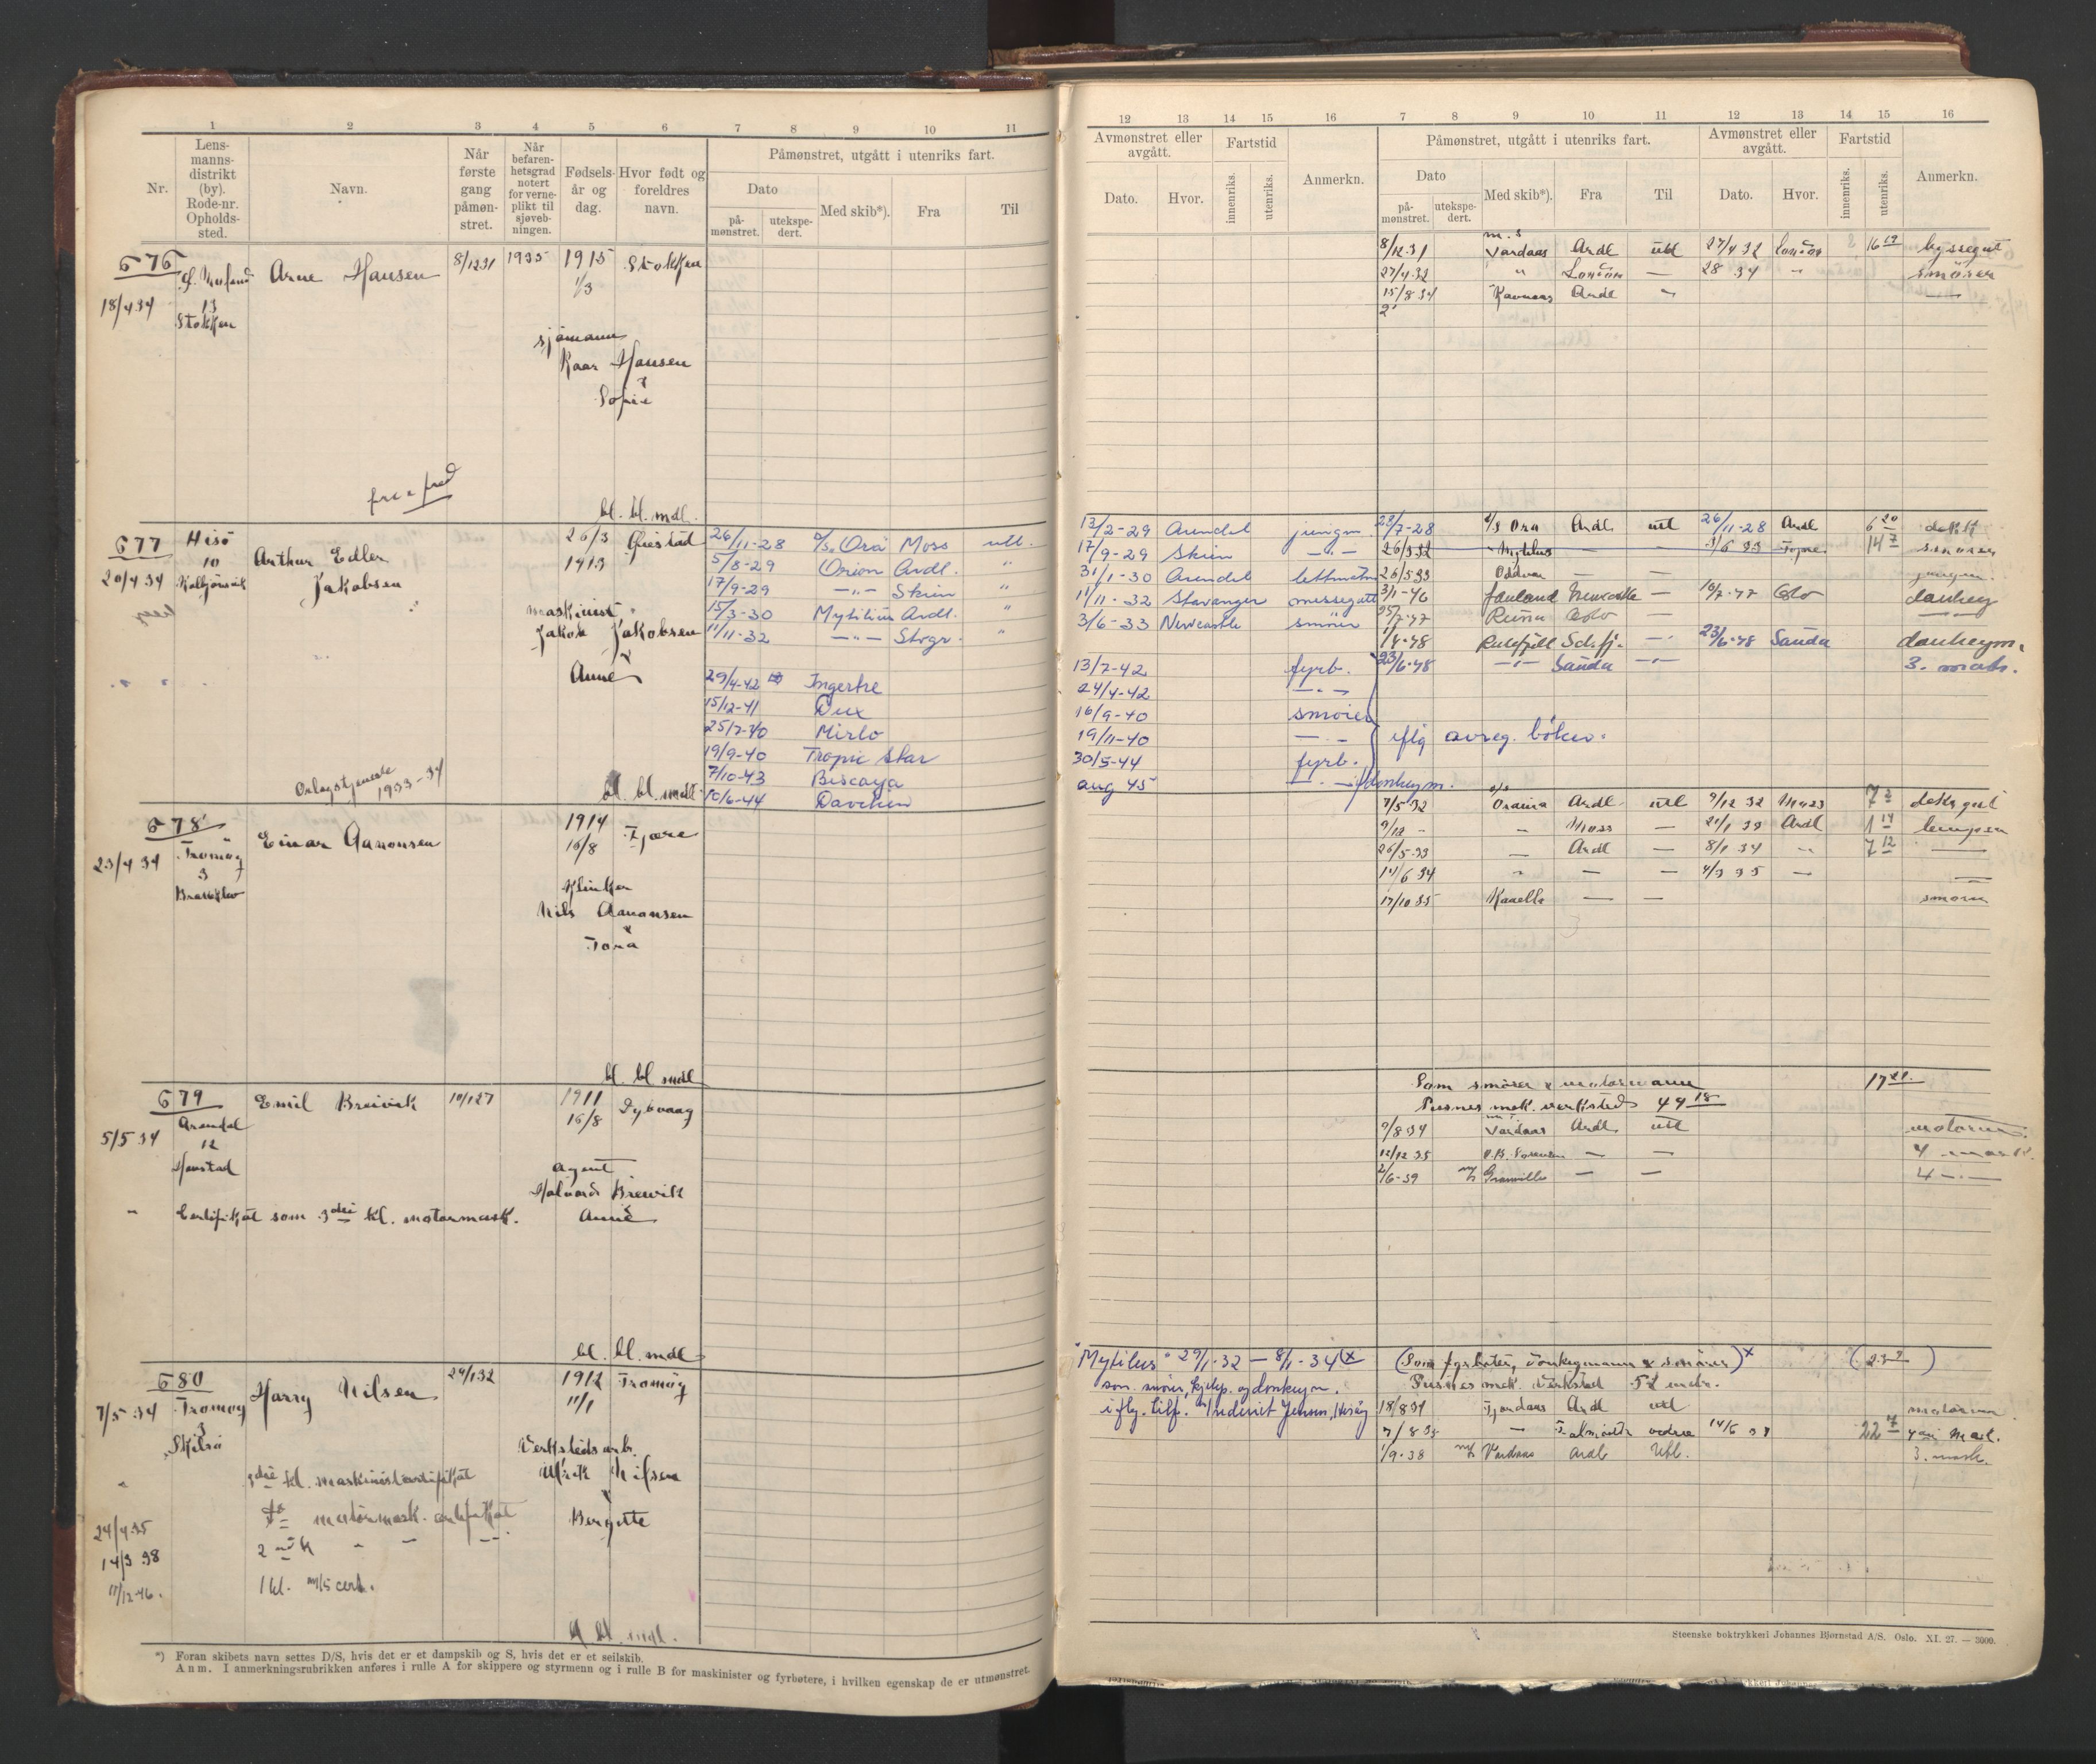 1 2 3 4 5 6 7 8 9 10 11
Nr.
Lens-
manns-
distrikt
(by).
Rode-nr.
Opholds-
sted.
Navn.
Når
første
gang
påmøn-
stret.
Når
befaren-
hetsgrad
notert
for verne-
plikt til
sjøveb-
ningen.
Fødsels-
år og
dag.
Hvor født og
foreldres
navn.
Påmønstret, utgått i utenriks fart.
Dato
på-
mønstret.
utekspe-
dert.
Med skib*).
Fra
Til
676 Arne Hansen 8/12 31 1935 1915 Stokken
18/4 34 13 1/3
Stokken
sjømann
Kaar Hansen
&
Sofie
bl. bl. mdl.
677 Hisö 26/3 26/11-28 D/S. Ora Moss utl.
10 Arthur Edler 1913 5/8-29 Orion Ardl. "
20/4 34 Kolbjörnsvik Jakobsen 17/9-29 -"- Skien "
maskinist 15/3-30 Mytilus Ardl. "
Jakob Jakobsen 11/11-32 -"- Stvgr. "
&
Anne 29/4-42 Ingertre
15/12-41 Dux
25/7-40 Mirlo
19/9-40 Tropic Star
Orlogstjeneste 1933-34 7/10-43 Biscaya
bl. bl. mdl. 10/6-44
678 1914 Fjære
Tromøy Einar Aanonsen 16/8
23/4 34 3
Nils Aanonsen
&
Tora
bl. bl. mdl
679 Emil Breivik 10/1 27 1911 Dybvaag
Arendal 16/8
5/5 34 12
Agent
Halvard Breivik
&
" Certifikat som 3die kl. motormask. Anne
bl. bl. mdl
680 Harry Nilsen 29/1 32 1912 Tromøy
7/5 34 Tromøy 11/1
3
Skilsö
Verkstedsarb.
" 3die kl. maskinistcertifikat Nilsen
&
24/4 35 do motormask. certifikat Bergitte
14/3 38
11/12-46. 1 kl. m/s cert.
bl. bl. mdl.
*) Foran skibets navn settes D/S, hvis det er et dampskib og S, hvis det er et seilskib.
Anm. I anmerkningsrubrikken anføres i rulle A for skippere og styrmenn og i rulle B for maskinister og fyrbøtere, i hvilken egenskap de er utmønstret.
12 13 14 15 16 7 8 9 10 11 12 13 14 15 16
Avmønstret eller
avgått.
Fartstid
Dato.
Hvor.
innenriks.
utenriks.
Anmerkn.
Påmønstret, utgått i utenriks fart.
Dato
på-
mønstret.
utekspe-
dert.
Med skib*).
Fra
Til
Avmønstret eller
avgått.
Dato.
Hvor.
Fartstid
innenriks.
utenriks.
Anmerkn.
m.s
8/12 31 Vardaas Ardl utl 27/4 32 London 16 19 byssegut
27/4 32 " London — 28 34 " smører
15/8 34 Ardl " —
13/2-29 Arendal jungm. 28/7-28 D/S Ora Ardl utl 26/11-28 Ardl 6 20
17/9-29 Skien -"- 26/3 32 Mytilus — — 3/6 33 14 7 smører
31/1-30 Arendal lettmatr. 26/5 33 Oddvar — — jungm.
11/11-32 Stavanger messegutt 3/1-46 Newcastle — 16/7-47 Oslo
3/6-33 Newcastle smører 25/7-47 Runa Oslo —
1/4-48 — 23/6-48 Sauda donkeym.
13/7-42 fyrb. 23/6-48 -"- Sauda -"- 3. mask.
24/4-42 -"-
16/9-40 smører
19/11-40 -"- iflg avreg. bøker.
30/5-44 fyrb.
aug 45 -"- /donkeym.
7/5 32 Ardl utl 9/12 32 Moss 7 2 dekksgut
9/12 - " Moss — 21/1 33 Ardl 1 14 lemper
26/5-33 — Ardl — 8/1 34 " 7 12 —
14/6 34 " — — 4/3 35 — —
17/10 35 — — smører
Som smører & motormann 17 21.
Pusnes mek. verksted 49 18
9/8 34 Vardaas Ardl utl motorm.
12/12 35 — — 4 mask.
2/6-39 m/s Granville — — 4 -"-
"Mytilus" 29/1-32 — 8/1-34 (x (Som fyrbøter, donkeymann & smører) x
som smører, hjelp. og donkeym. Pusnes mek. Verksted 52 mdr.
18/8 34 Fjordaas Ardl utl motorm
7/8 35 — 14/6 37 22 7 4de Mask.
1/9-38 m/s Vardaas Ardl Utl. 3. mask.
Steenske boktrykkeri Johannes Bjørnstad A/S. Oslo. XI. 27. — 5000.